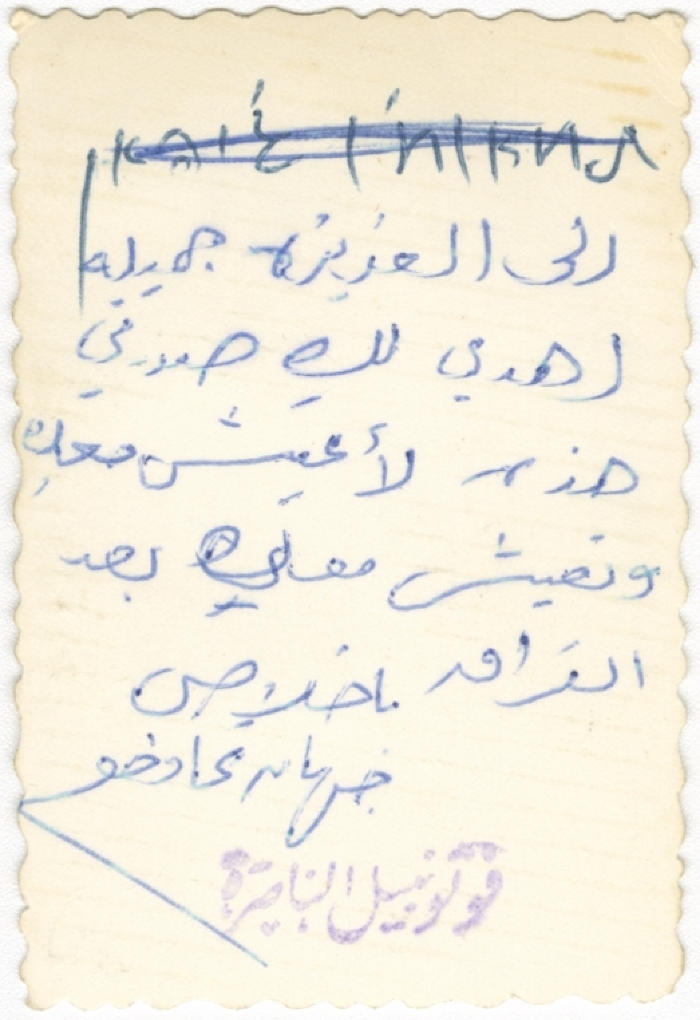 الى العزيزه جميله
اهدي لك صورتي
هذه لأعيش معك
وتعيش معاكي بعد
الفراق باخلاص
جهاد
فوتو نبيل الناصرة